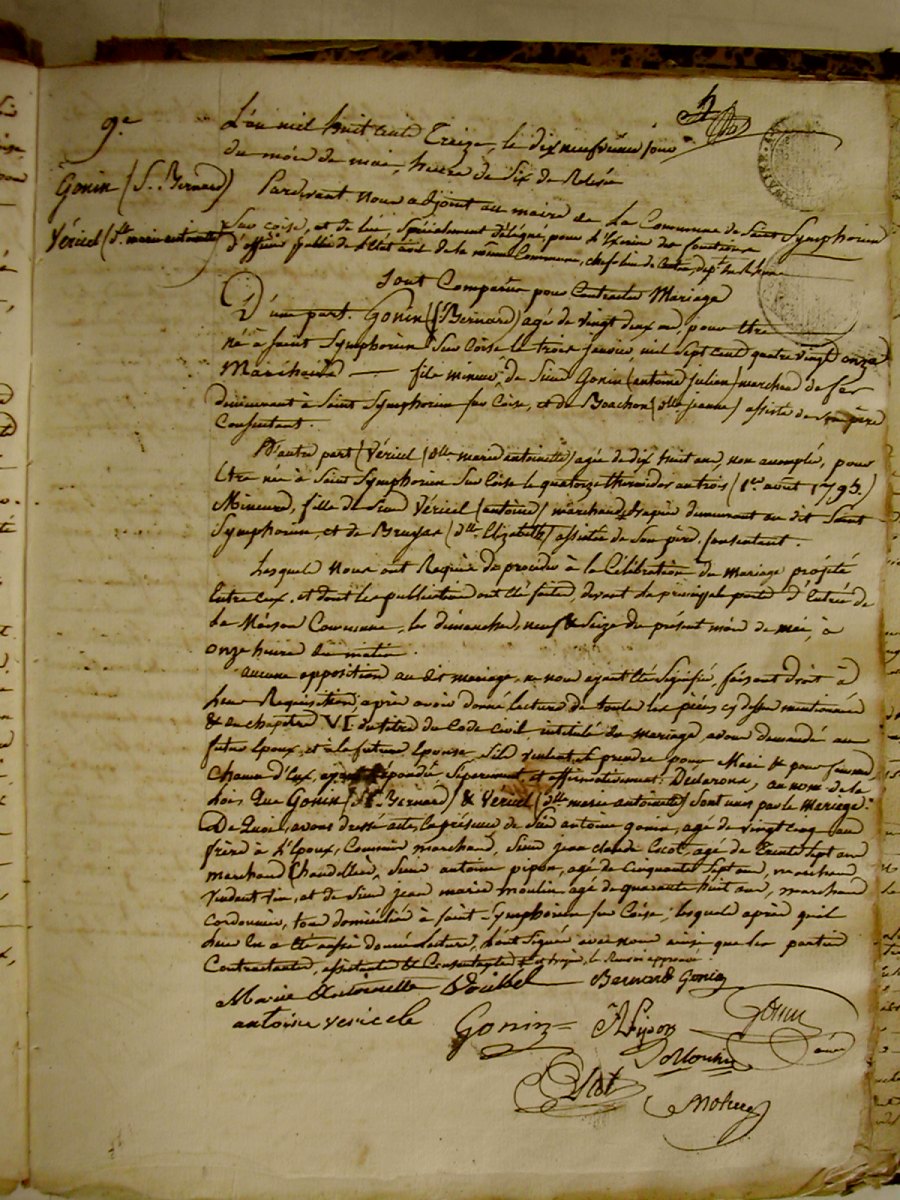 9.e
Gonin (S.r Bernard)
Véricel (d.lle marie antoinette)
L'an mil huit cent Treize, le dix neufvieme jour
du mois de mai, heure de Six de Relevée
Pardevant Nous adjoint au maire de La Commune de Saint Symphorien
Sur coise, et de lui, Spécialement délégué, pour L'Exercice des fonctions
d'officier public de L'Etat civil de la même Commune, chef lieu de Canton, dép.t du Rhône
Sont Comparus pour Contracter Mariage
D'une part. Gonin (S.r Bernard) agé de vingt deux ans, pour être
né à Saint Symphorien Sur Coise le trois Janvier mil Sept cent quatre vingt onze
Marchand — fils mineur de Sieur Gonin (antoine Julien) marchand de fer
demeurant à Saint Symphorien sur Coise, et de Boachon (d.lle jeanne) assisté de Son père
Consentant.
D'autre part (Véricel (d.lle marie antoinette) agée de dix huit ans, non accomplis, pour
Etre née à Saint Symphorien Sur Coise le quatorze thermidor an trois (1.er août 1795.)
Mineure, fille de Sieur Véricel (antoine) marchand drapier demeurant au dit Saint
Symphorien, et de (d.lle Elizabeth) assistée de Son père. Consentant.
Lesquels Nous ont Requis de proceder à la Célébration du mariage projeté
Entre eux, et dont les publications ont été faites, devant la principale porte d'Entrée de
la Maison Commune, les dimanches, neuf & Seize du présent mois de mai, à
onze heures du matin.
aucune opposition au dit mariage, ne nous ayant été Signifié, faisant droit à
Leur Requisition, après avoir donné lecture de toutes les pièces cy dessus mentionnées
& du chapitre VI. du titre du Code civil intitulé du mariage, avons demandé au
futur Epoux, et à la future Epouse, S'ils veulent se prendre pour Mari & pour femme
Chacun d'Eux, ayant Répondu Séparement et affirmativement; Declarons, au nom de la
Loi, Que Gonin (S.r Bernard) & Véricel (d.lle marie antoinette) Sont unis par le Mariage.
De Quoi, avons dressé acte, en présence de Sieur antoine gonin, agé de vingt cinq ans
frère à L'Epoux, Commis marchand, Sieur jean claude agé de Trente Sept ans
marchand Chandellier, Sieur antoine pipon, agé de Cinquante Sept ans, marchand
et de Sieur jean marie moulin agé de quarante huit ans, marchand
cordonnier, tous domiciliés à Saint Symphorien sur Coise; lesquels après qu'il
Leur En a été aussi donné Lecture, L'ont Signé avec nous ainsi que les parties
Contractantes, assistants & Consentants
Marie Antoinette Bernard Gonin
antoine vericele Gonin APipon Gonin
Moulin